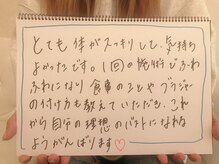 とても体がスッキリして、気持ち
よかったです。1回の施術でふわ
ふわになり食事のことやブラジャー
の付け方も教えていただき、これ
から自分の理想のバストになれる
ようがんばります♡